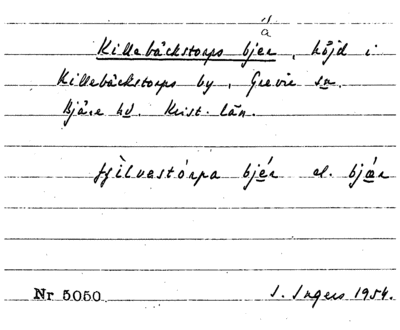 á
Killebäckstorps bjer, höjd i
Killebäckstorps by, Grevie sn.
Bjäre hd. Krist. län.
bjér el. bjǽr
Nr 5050 I. Ingers 1954.